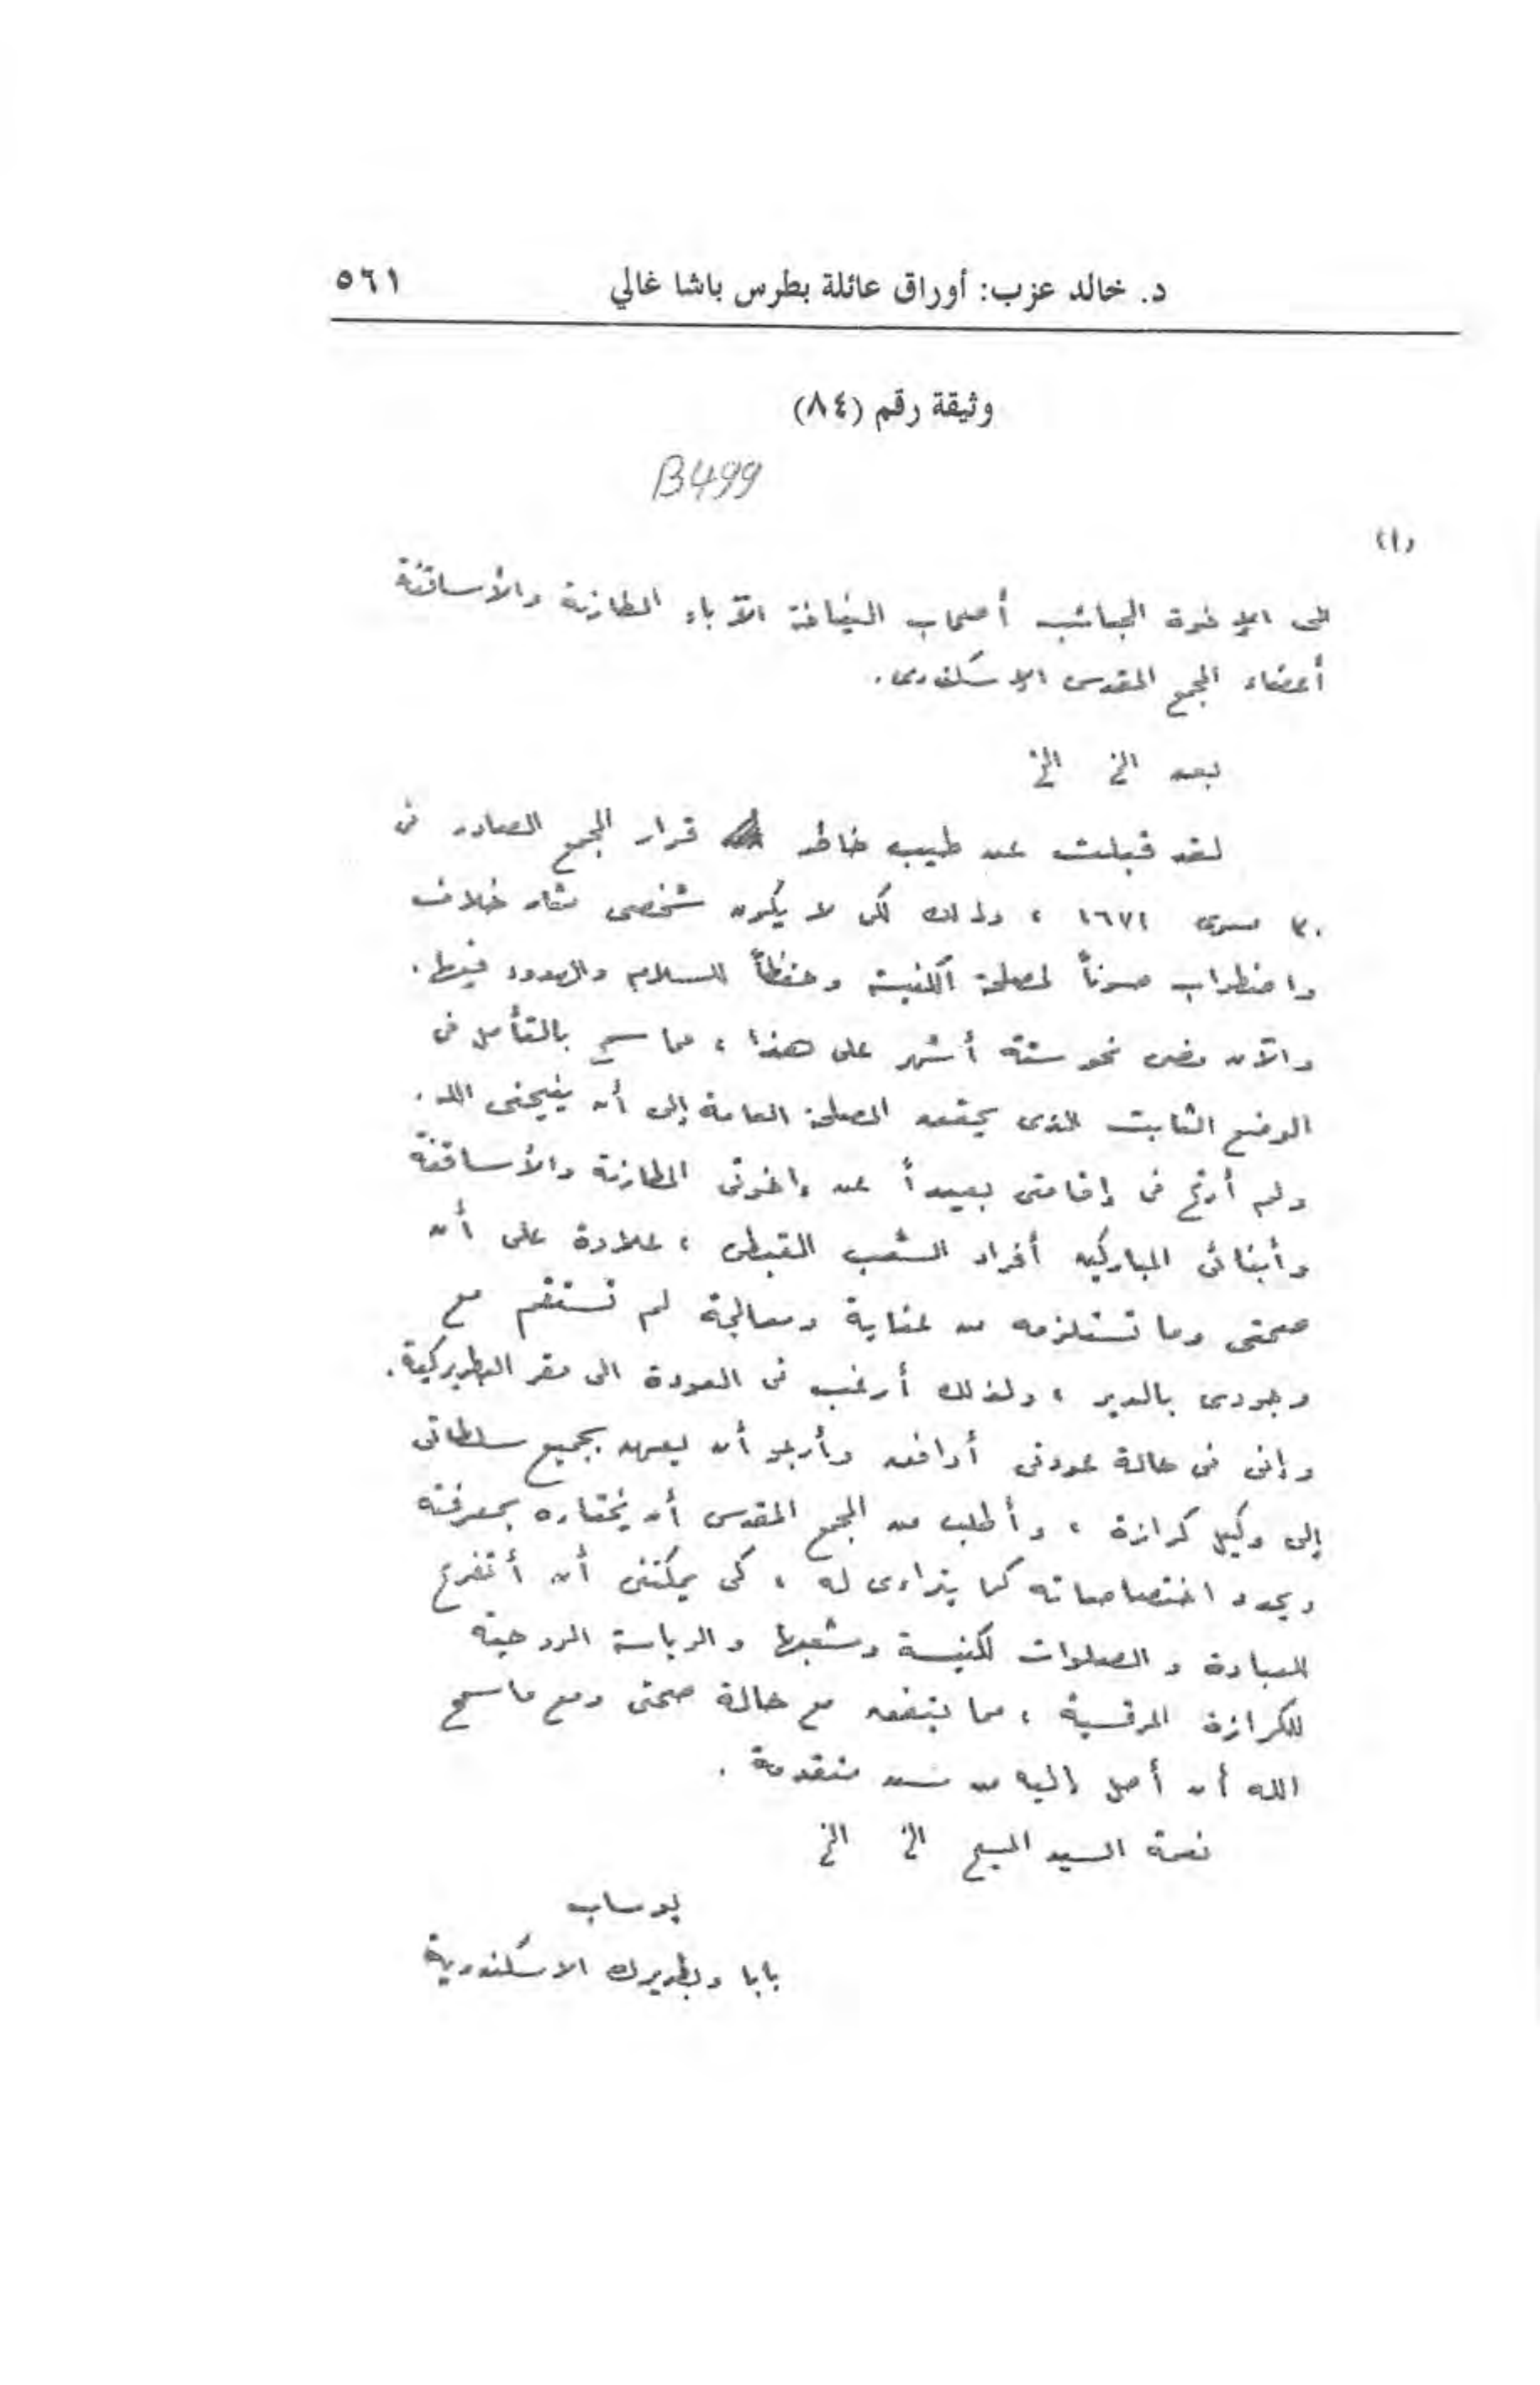 د. خالد عزب: أوراق عائلة بطرس باشا غالي
٥٦١
وثيقة رقم (٨٤)
B499
(١)
إلى الإخوة الحبائب أصحاب النيافة الآباء المطارنة والأساقفة
أعضاء المجمع المقدس الإسكندرى.
بعد الخ الخ
لقد قبلت عن طيب خاطر قرار المجمع الصادر فى
٣٠ مسرى ١٦٧١ ، وذلك لكى لا يكون شخصى مثار خلاف
واضطراب صوناً لمصلحة الكنيسة وحفظاً للسلام والهدوء فيها.
والآن مضى نحو ستة أشهر على هذا ، مما سمح بالتأمل فى
الوضع الثابت الذى يحقق المصلحة العامة إلى أن ينيحنى الله.
ولم أرتح فى إقامتى بعيداً عن إخوتى المطارنة والأساقفة
وأبنائى المباركين أفراد الشعب القبطى ، علاوة على أن
صحتى وما تستلزمه من عناية ومعالجة لم تستقم مع
وجودى بالدير ، ولذلك أرغب فى العودة الى مقر البطريركية.
وإنى فى حالة عودتى أوافق وأرجو أن يعهد بجميع سلطاتى
إلى وكيل كرازة ، وأطلب من المجمع المقدس أن يختاره بمعرفته
ويحدد اختصاصاته كما يتراءى له ، كى يمكننى أن أتفرغ
للعبادة والصلوات لكنيسة وشعبها والرياسة الروحية
للكرازة المرقسية ، مما يتفق مع حالة صحتى ومع ما سمح
الله أن أصل إليه من سن متقدمة .
نعمة السيد المسيح الخ الخ
يوساب
بابا وبطريرك الاسكندرية